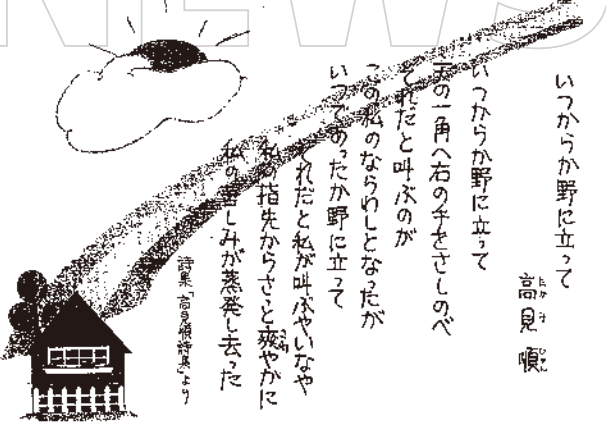 NEWS
いつからか野に立って
高見 順
たかみ じゅん
いつからか野に立って
天の一角へ右の手をさしのべ
それだと叫ぶのが
この私のならわしとなったが
いつであったか野に立って
それだと私が叫ぶやいなや
私の指先からさっと爽やかに
さわ
私の苦しみが蒸発し去った
詩集「高見順詩集」より